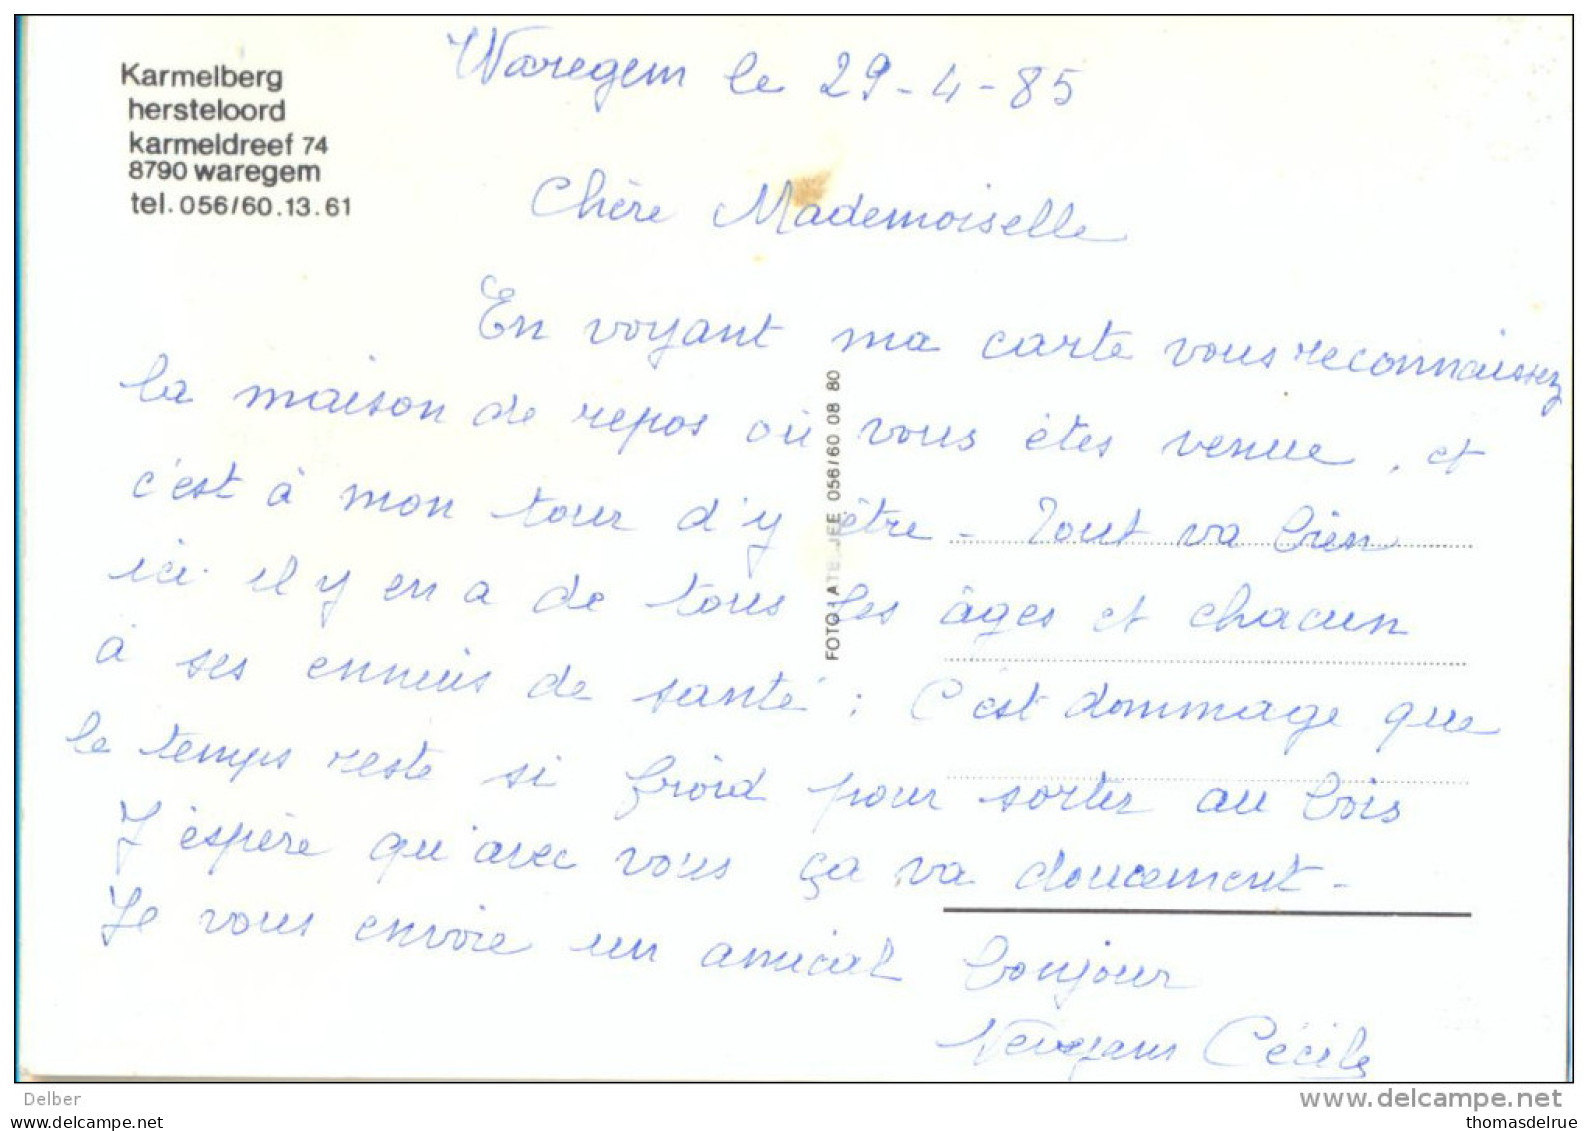 Karmelberg
hersteloord
karmeldreef 74
8790 waregem
tel. 056/60.13.61
Waregem le 29-4-85
Chère Mademoiselle
En voyant ma carte vous reconnaissez
la maison de repos où vous êtes venue, et
c'est à mon tour d'y être - Tout va bien
ici il y en a de tous les âges et chacun
à ses ennuis de santé : C'est dommage que
le temps reste si froid pour sortir au bois
J'éspère qu'avec vous ça va doucement -
Je vous envoie un amical bonjour
Cécile
FOTO-ATELJEE 056/60 08 80
Delber
www.delcampe.net
www.delcampe.net
thomasdelrue